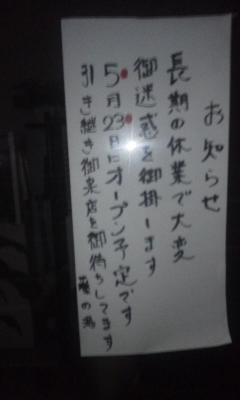 お知らせ
長期の休業で大変
御迷惑を御掛します
5月23日にオープン予定です
引き越き御来店を御待ちしてます
の為